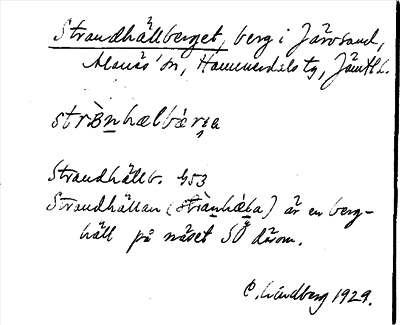 Strandhällberget, berg i Järvsand,
Alanäs s:n, Hammerdals tg, Jämtl.
strànhælbærja
Strandhällb. 453
Strandhällan (strànhæla) är en berg-
häll på näset SO därom.
C. Lindberg 1929.